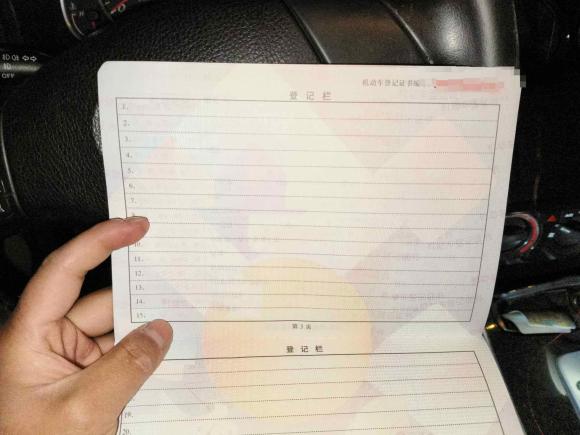 OFF
机动车登记证书编
登记栏
1.
2.
3.
4.
5.
6.
7.
10.
11.
12.
13.
14.
15.
第3页
登记栏
19.
20.